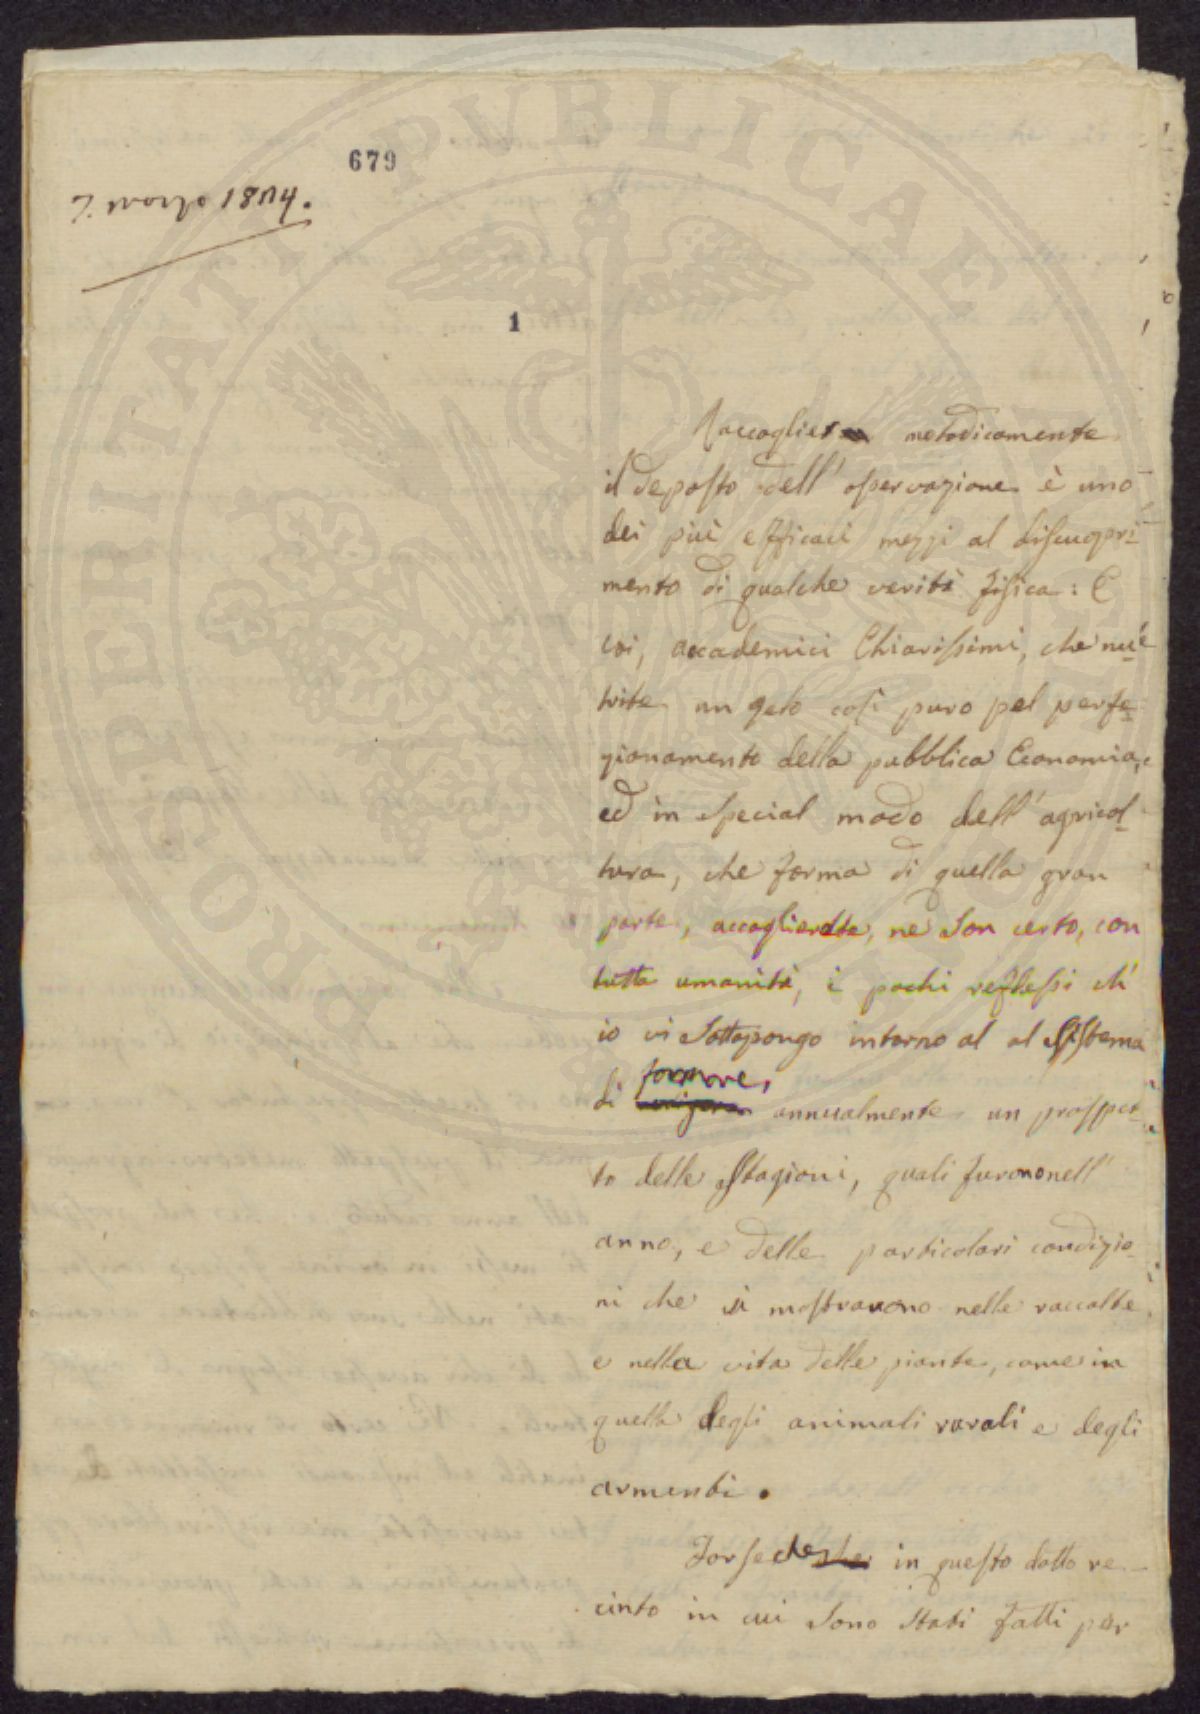 679
1804.
1
Raccoglier metodicamente
il deposto dell' osservazione è uno
dei più efficaci mezzi al discuopri-
mento di qualche verità fisica: E
voi, accademici Chiarissimi, che nu-
trite un zelo così puro pel perfe-
zionamento della pubblica Economia,
ed in special modo dell' agricol-
tura, che forma di quella gran
parte, accoglierete, ne son certo, con
tutta umanità, i pochi reflessi ch'
io vi sottopongo intorno al al sistema
formare,
di annualmente un prospet-
to delle Stagioni, quali furono nell'
anno, e delle particolari condizio-
ni che si mostrarono nelle raccolte
e nella vita delle piante, come in
quella degli animali rurali e degli
armenti.
Forse in questo dotto re-
cinto in cui sono stati fatti per
PROSPERITATI PUBLICAE